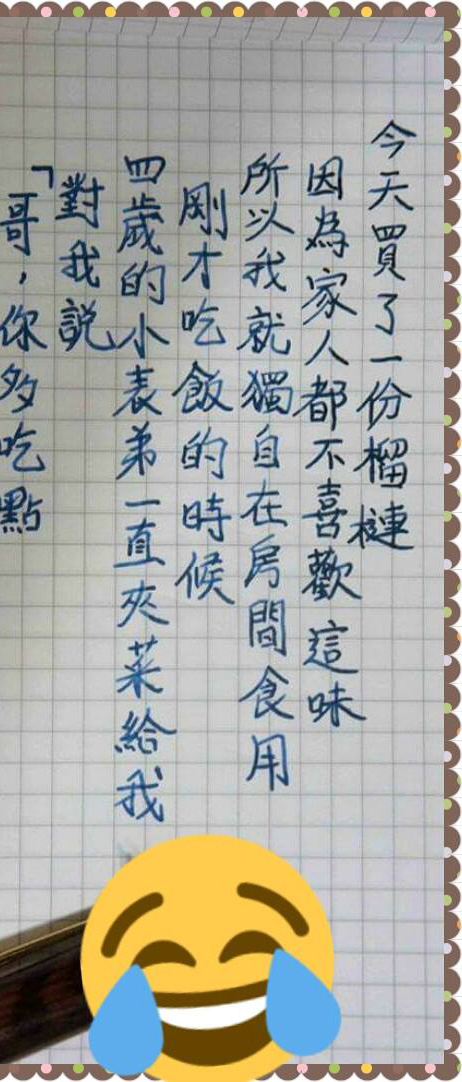 今天買了一份榴槤
因為家人都不喜歡這味
所以我就獨自在房間食用
剛才吃飯的時候
四歲的小表弟一直夾菜給我
對我說
「哥，你多吃點